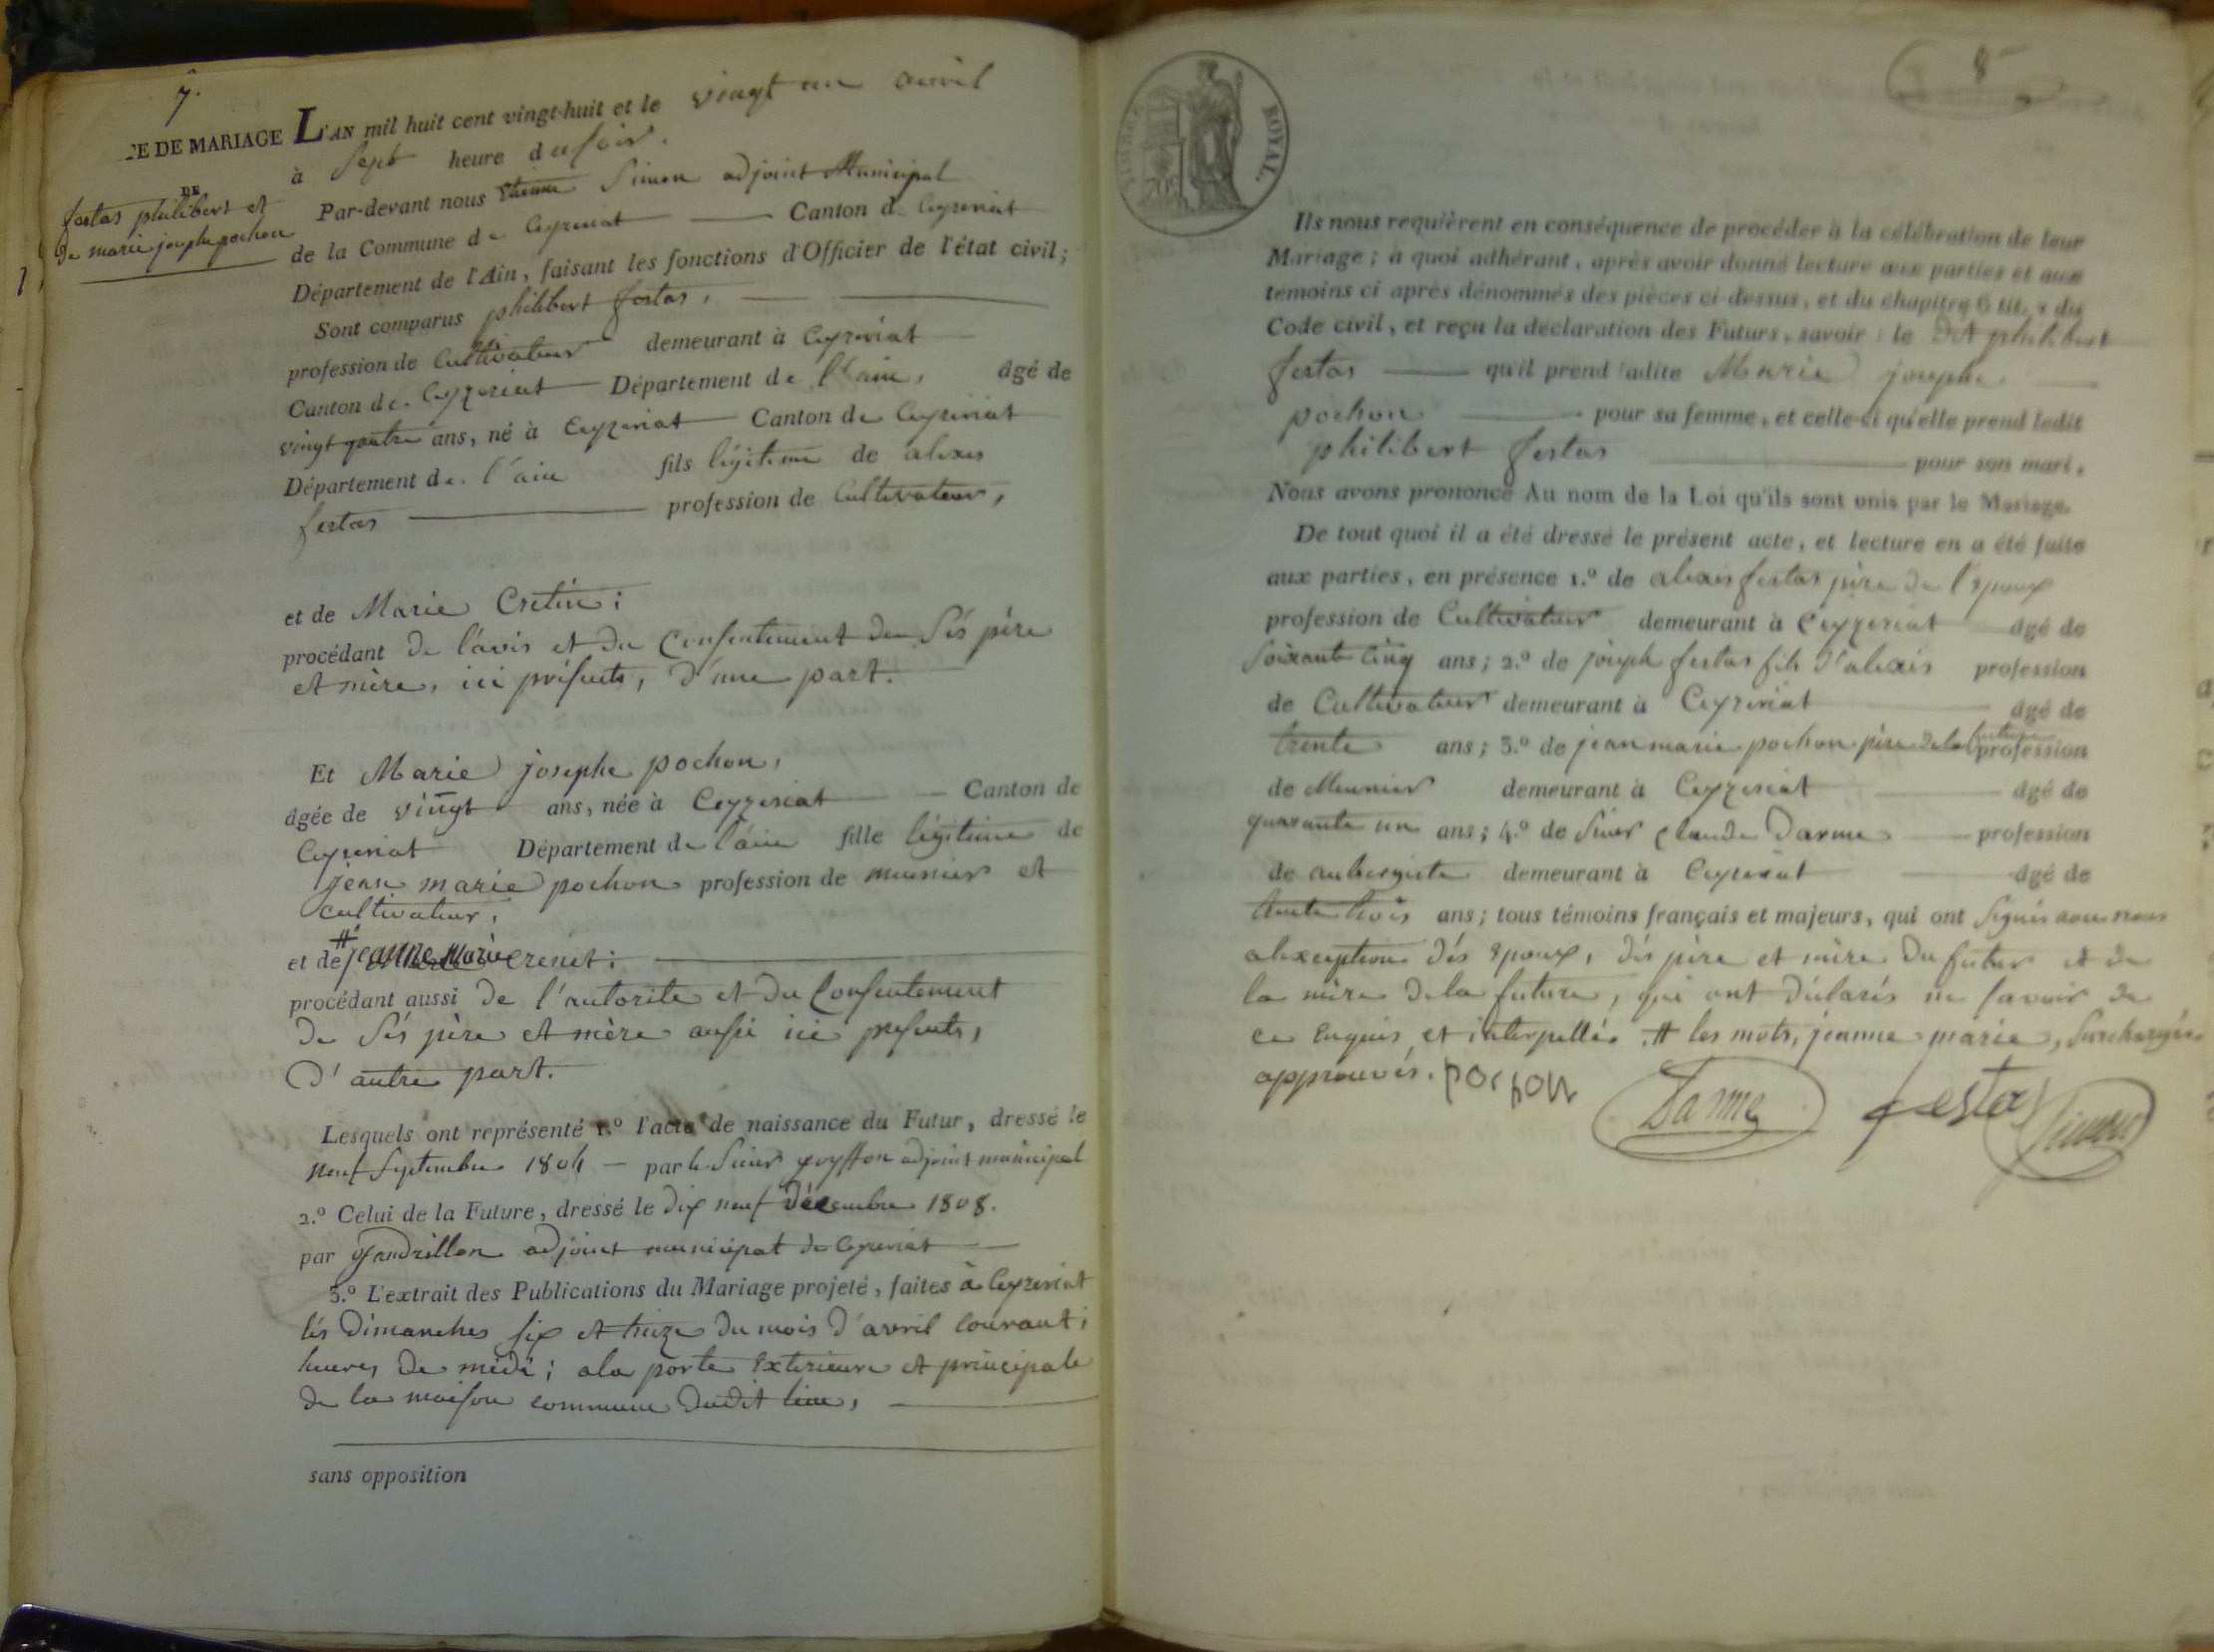 7.
E DE MARIAGE
DE
festas philibert et
de marie josephe pochon
L'AN mil huit cent vingt-huit et le vingt un avril
à Sept heure du soir.
Par-devant nous Simon adjoint Municipal
de la Commune de Ceyzeriat Canton de Ceyzeriat
Département de l'Ain, faisant les fonctions d'Officier de l'état civil;
Sont comparus philibert festas,
profession de Cultivateur demeurant à Ceyzeriat
Canton de Ceyzeriat Département de l'ain, âgé de
vingt quatre ans, né à Ceyzeriat Canton de Ceyzeriat
Département de l'ain fils légitime de alexis
festas profession de Cultivateur,
et de Marie Cretin;
procédant de l'avis et du Consentement de Sés père
et mère, ici présents, d'une part.
Et Marie josephe pochon,
âgée de vingt ans, née à Ceyzeriat Canton de
Ceyzeriat Département de l'ain fille légitime de
jean marie pochon profession de meunier et
cultivateur,
et de # jeanne marie crenet;
procédant aussi de l'autorite et du Consentement
de Sés père et mère aussi ici présents,
D'autre part.
Lesquels ont représenté 1.º l'acte de naissance du Futur, dressé le
neuf Septembre 1804 par le Sieur goyffon adjoint municipal
2.º Celui de la Future, dressé le dix neuf décembre 1808.
par gandrillon adjoint municipal de Ceyzeriat
3.º L'extrait des Publications du Mariage projeté, faites à Ceyzeriat
lés Dimanches six et treize du mois d'avril courant;
heures de midi; a la porte Exterieure et principale
de la maison commune dudit lieu,
sans opposition
8
TIMBRE ROYAL.
Ils nous requièrent en conséquence de procéder à la célébration de leur
Mariage; à quoi adhérant, après avoir donné lecture aux parties et aux
témoins ci après dénommés des pièces ci-dessus, et du chapitre 6 tit. 5 du
Code civil, et reçu la déclaration des Futurs, savoir: le dit philibert
festas qu'il prend ladite Marie josephe
pochon pour sa femme, et celle-ci qu'elle prend ledit
philibert festas pour son mari,
Nous avons prononcé Au nom de la Loi qu'ils sont unis par le Mariage.
De tout quoi il a été dressé le présent acte, et lecture en a été faite
aux parties, en présence 1.º de alexis festas père de l'Epoux
profession de Cultivateur demeurant à Ceyzeriat âgé de
soixante cinq ans; 2.º de joseph festas fils d'alexis profession
de Cultivateur demeurant à Ceyzeriat âgé de
trente ans; 3.º de jean marie pochon père de la future profession
de Meunier demeurant à Ceyzeriat âgé de
quarante un ans; 4.º de Sieur claude Darme profession
de aubergiste demeurant à Ceyzeriat âgé de
trente trois ans; tous témoins français et majeurs, qui ont signés avec nous
alexception dés Epoux, dés père et mère du futur et de
la mère de la future, qui ont déclarés ne savoir de
ce Enquis et interpellés. # les mots, jeanne marie, Surchargés
approuvés. pochon
Darme festas Simon